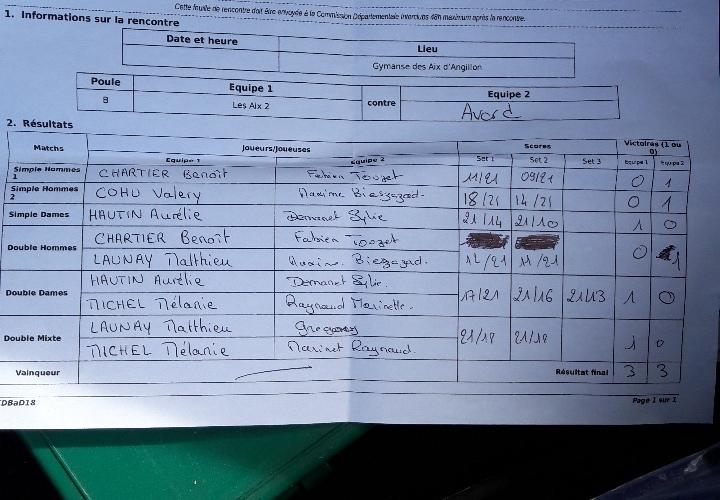 Cette feuille de rencontre doit être envoyée à la Commission Départementale Interclubs 48h maximum après la rencontre.
1. Informations sur la rencontre
Date et heure Lieu
Gymanse des Aix d'Angillon
Poule Equipe 1 contre Equipe 2
B Les Aix 2 Avord
2. Résultats
Matchs Joueurs/Joueuses Scores Victoires (1 ou 0)
Equipe 1 Equipe 2 Set 1 Set 2 Set 3 Equipe 1 Equipe 2
Simple Hommes 1 CHARTIER Benoît Fabien Touzet 11/21 09/21 0 1
Simple Hommes 2 COHU Valery Maxime 18/21 14/21 0 1
Simple Dames HAUTIN Aurélie Demanet Sylvie 21/14 21/10 1 0
Double Hommes CHARTIER Benoît Fabien Touzet
LAUNAY Matthieu Maxime 12/21 11/21 0 1
Double Dames HAUTIN Aurélie Demanet Sylvie.
MICHEL Mélanie Raynaud 17/21 21/16 21/13 1 0
Double Mixte LAUNAY Matthieu Gregory
MICHEL Mélanie Raynaud. 21/18 21/18 1 0
Vainqueur Résultat final 3 3
CDBaD18 Page 1 sur 1